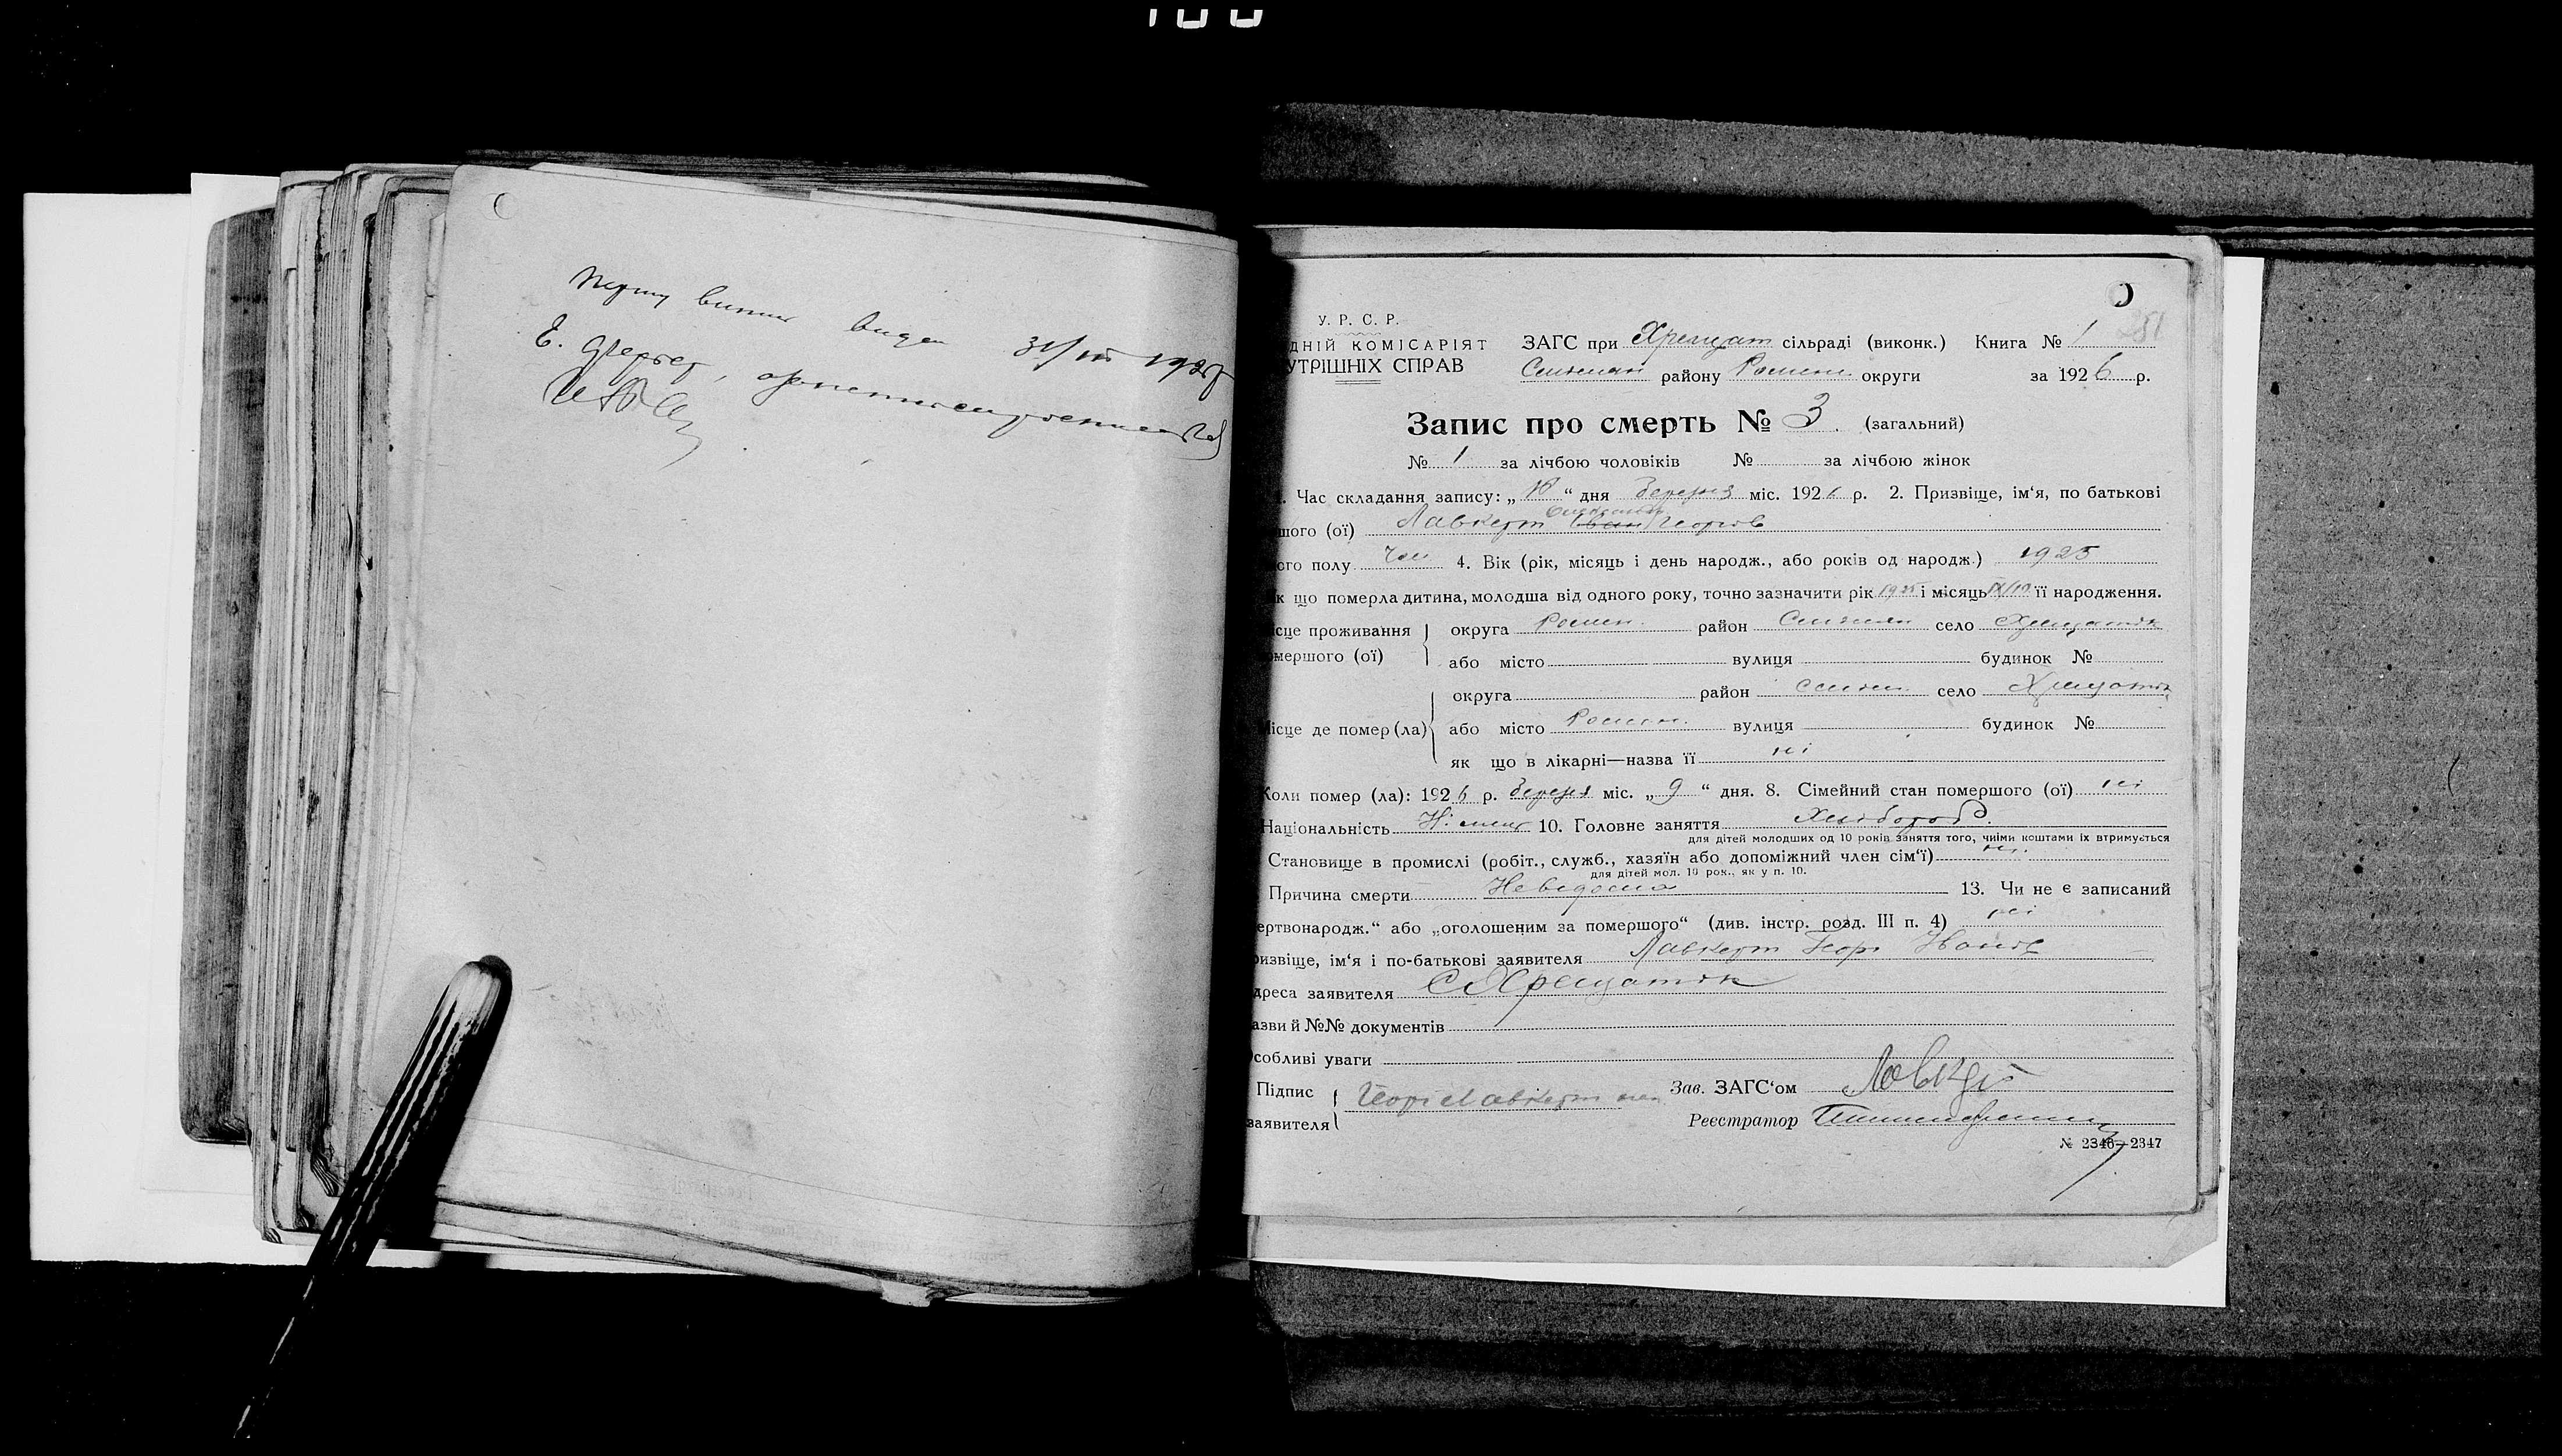 100
Першу випис видан 31/III 1927
У. Р. С. Р.
ДНІЙ КОМІСАРІЯТ
УТРІШНІХ СПРАВ
ЗАГС при Хрещат сільраді (виконк.) Книга № 1 281
району Ромен округи за 1926 р.
Запис про смерть № 3. (загальний)
№ 1 за лічбою чоловіків № за лічбою жінок
Час складання запису: „10“ дня березня міс. 1926 р. 2. Призвіще, ім‘я, по батькові
шого (ої) Лавкерт Георгів
ого полу Чол 4. Вік (рік, місяць і день народж., або років од народж.) 1925
к що померла дитина, молодша від одного року, точно зазначити рік 1925 і місяць її народження.
ісце проживання
омершого (ої)
округа Ромен. район село Хрещатік
або місто вулиця будинок №
округа район село Хрещатік
Місце де помер (ла) або місто Ромен. вулиця будинок №
як що в лікарні—назва її ні
Коли помер (ла): 1926 р. березня міс. „9“ дня. 8. Сімейний стан помершого (ої) ні
Національність Німець 10. Головне заняття Хлібороб.
для дітей молодших од 10 років заняття того, чиїми коштами їх втримується
Становище в промислі (робіт., служб., хазяїн або допоміжний член сім‘ї) ні.
для дітей мол. 10 рок., як у п. 10.
Причина смерти Невідома 13. Чи не є записаний
ертвонародж.“ або „оголошеним за помершого“ (див. інстр. розд. III п. 4) ні
ризвіще, ім‘я і по-батькові заявителя Лавкерт Георг Іванов
дреса заявителя С Хрещатік
азви й №№ документів
собливі уваги
Підпис
заявителя
Георг Лавкерт
Зав. ЗАГС‘ом
Реєстратор
№ 2346—2347